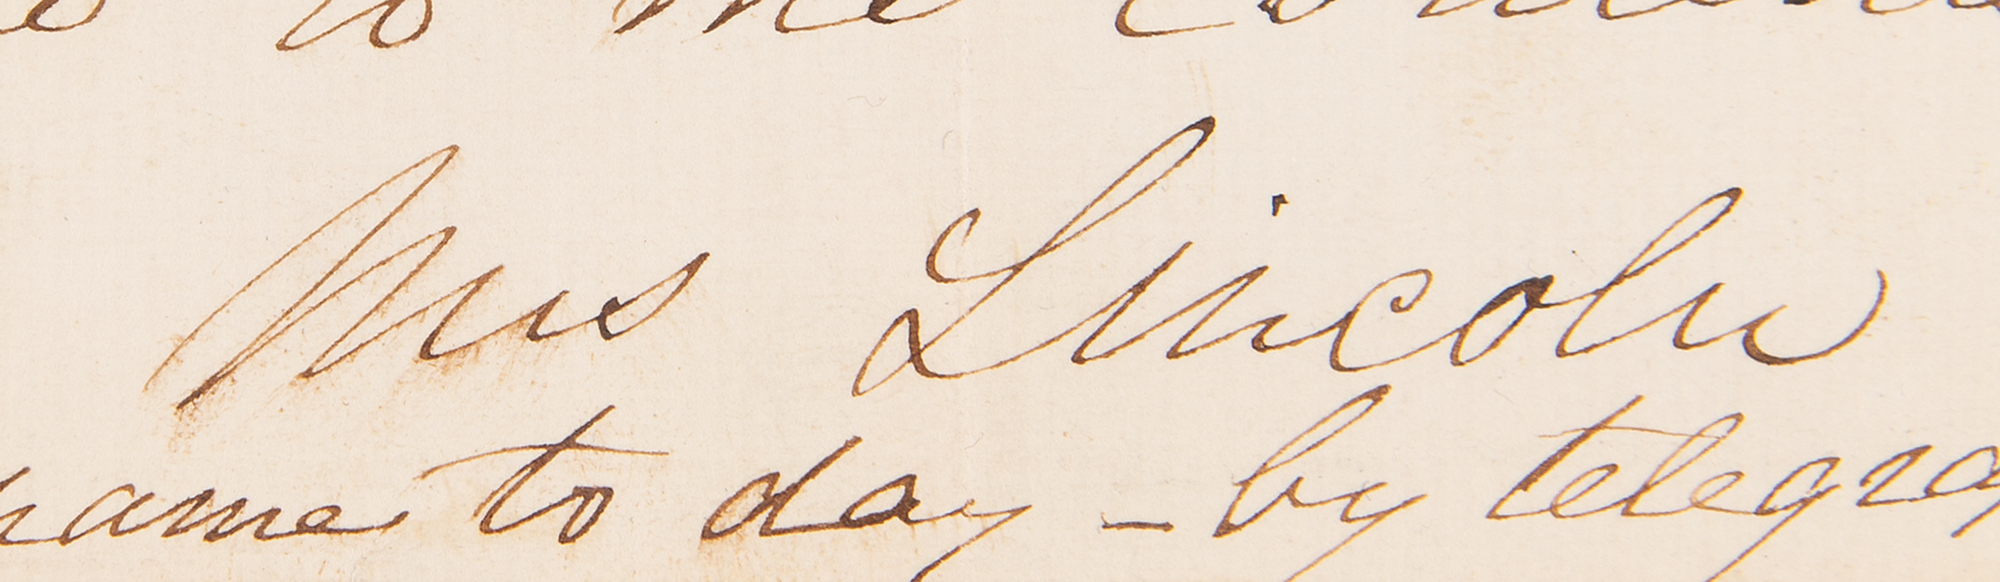 to me
Mrs Lincoln
name to day - by telegra